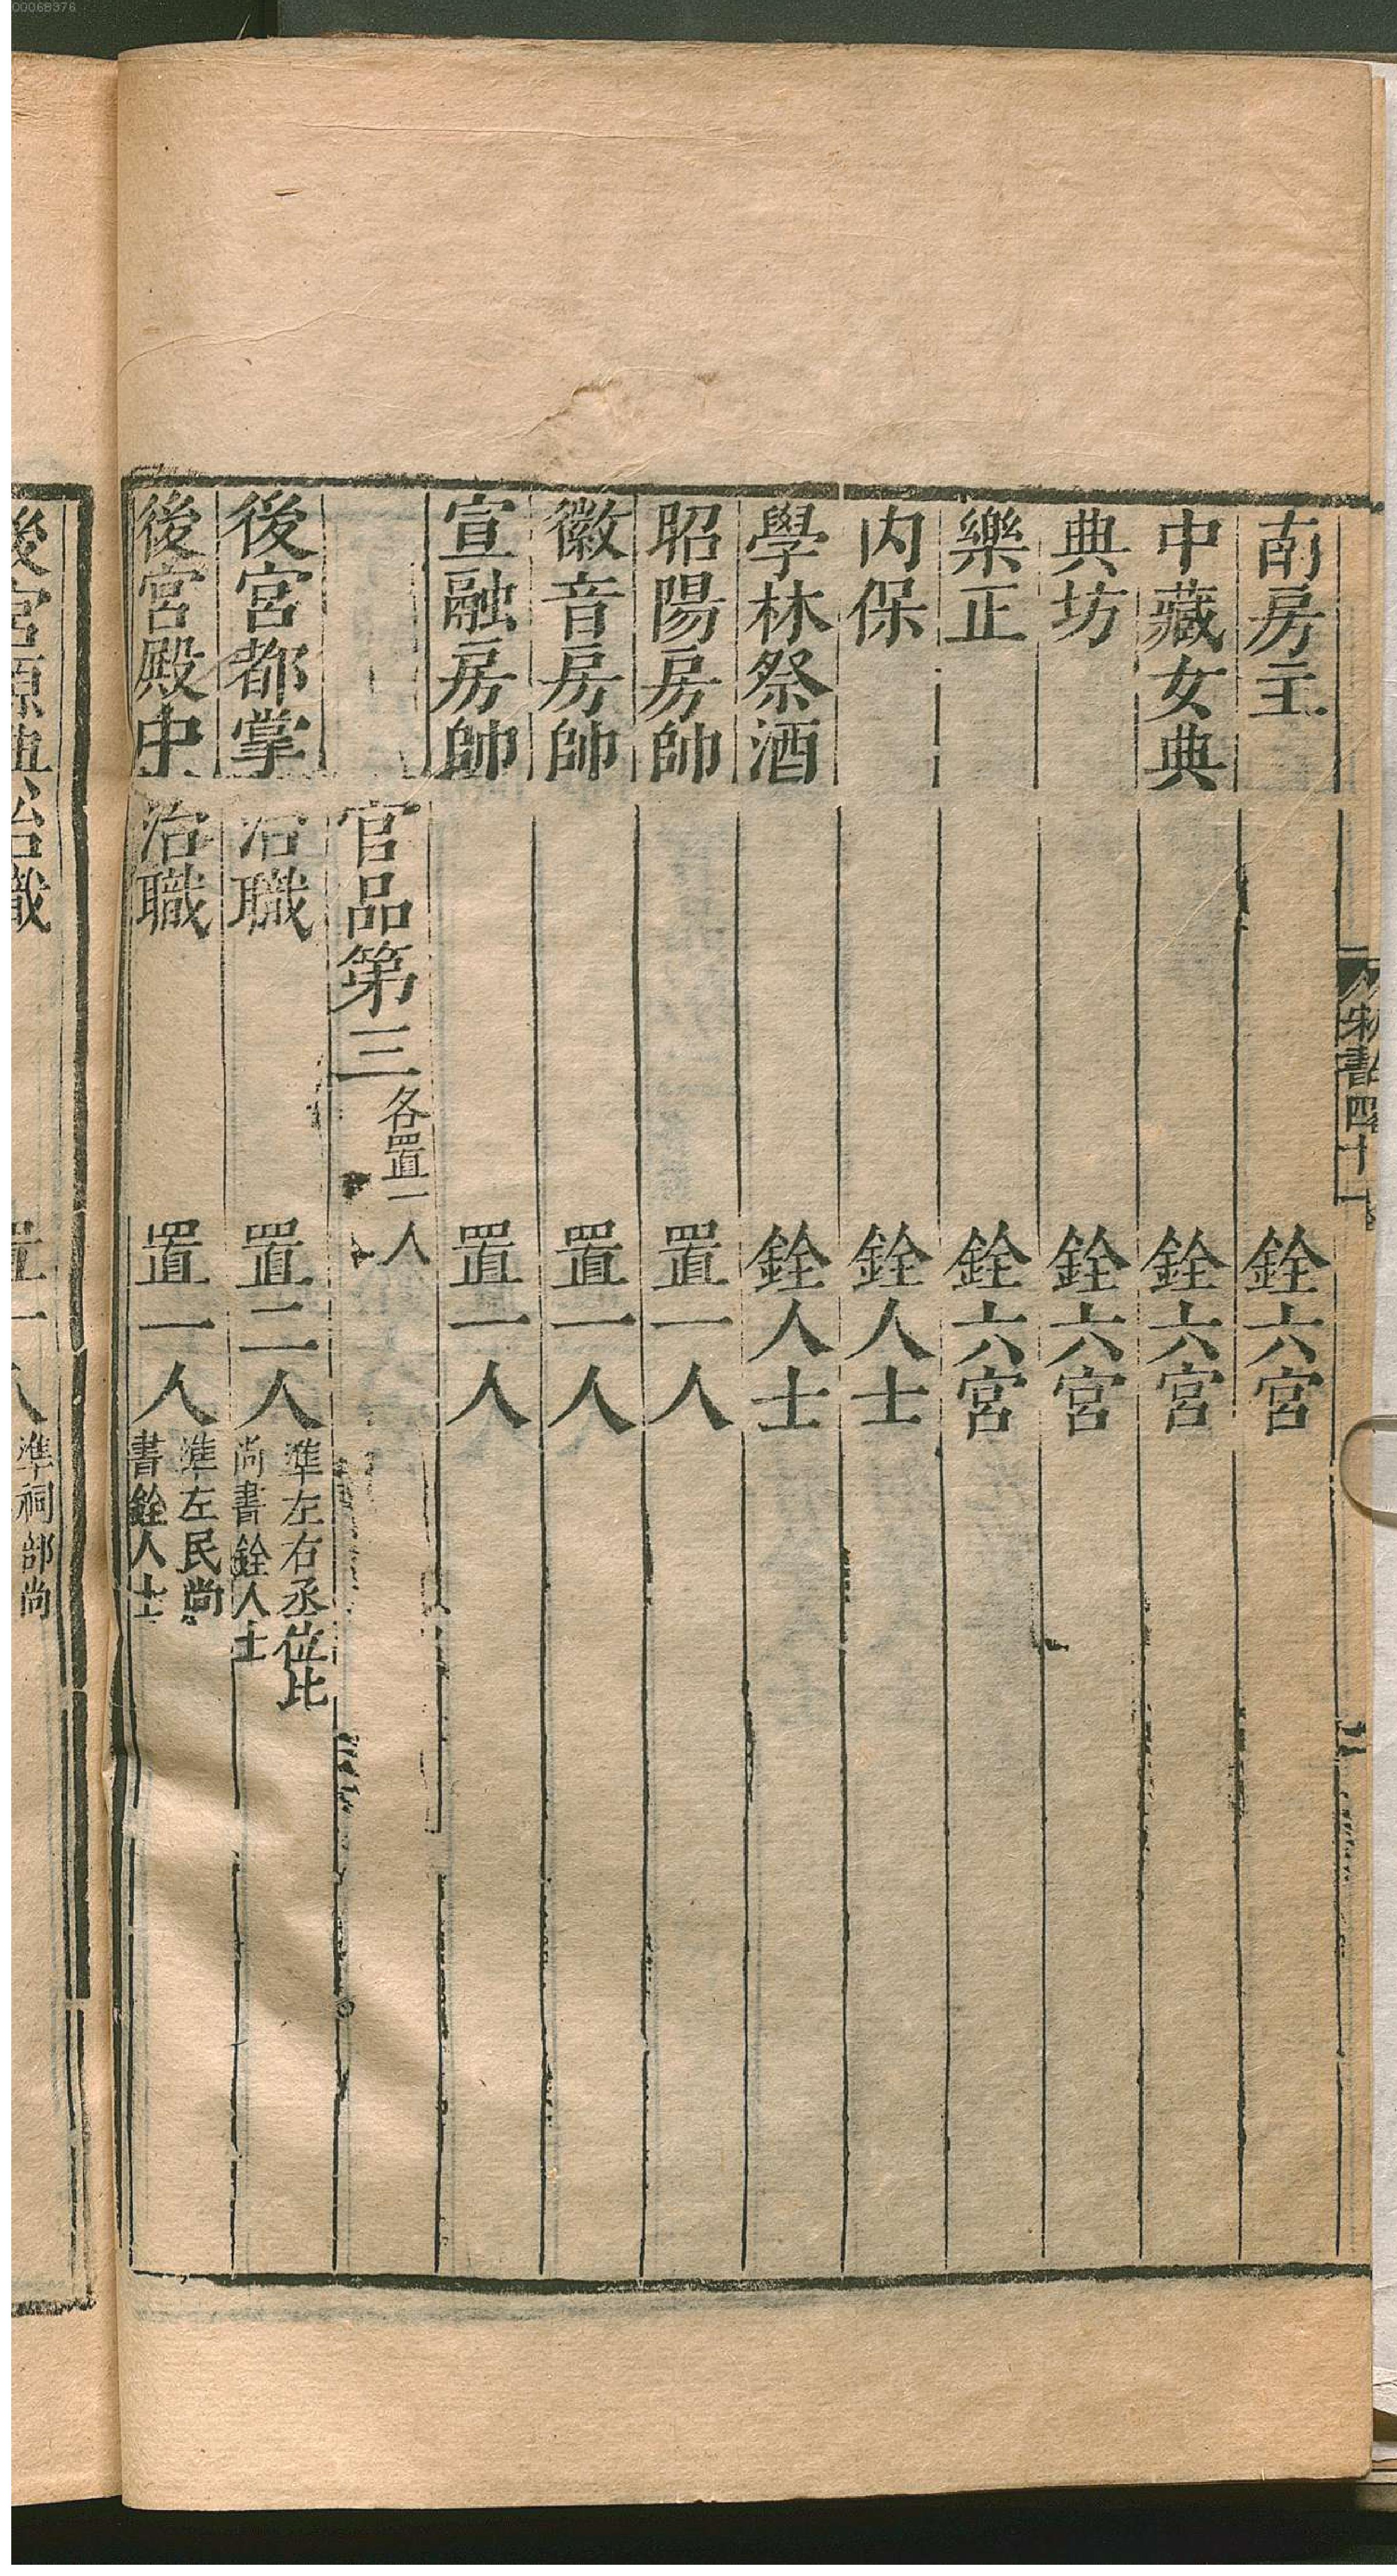 00068376
宋書四十一
南房主 銓六宮
中藏女典 銓六宮
典坊 銓六宮
樂正 銓六宮
内保 銓人士
學林祭酒 銓人士
昭陽房帥 置一人
徽音房帥 置一人
宣融房帥 置一人
官品第三各置一人
後宮都掌治職 置二人準左右丞位比尚書銓人士
後宮殿中治職 置一人準左民尚書銓人士
後宮源典治職 置一人準祠部尚